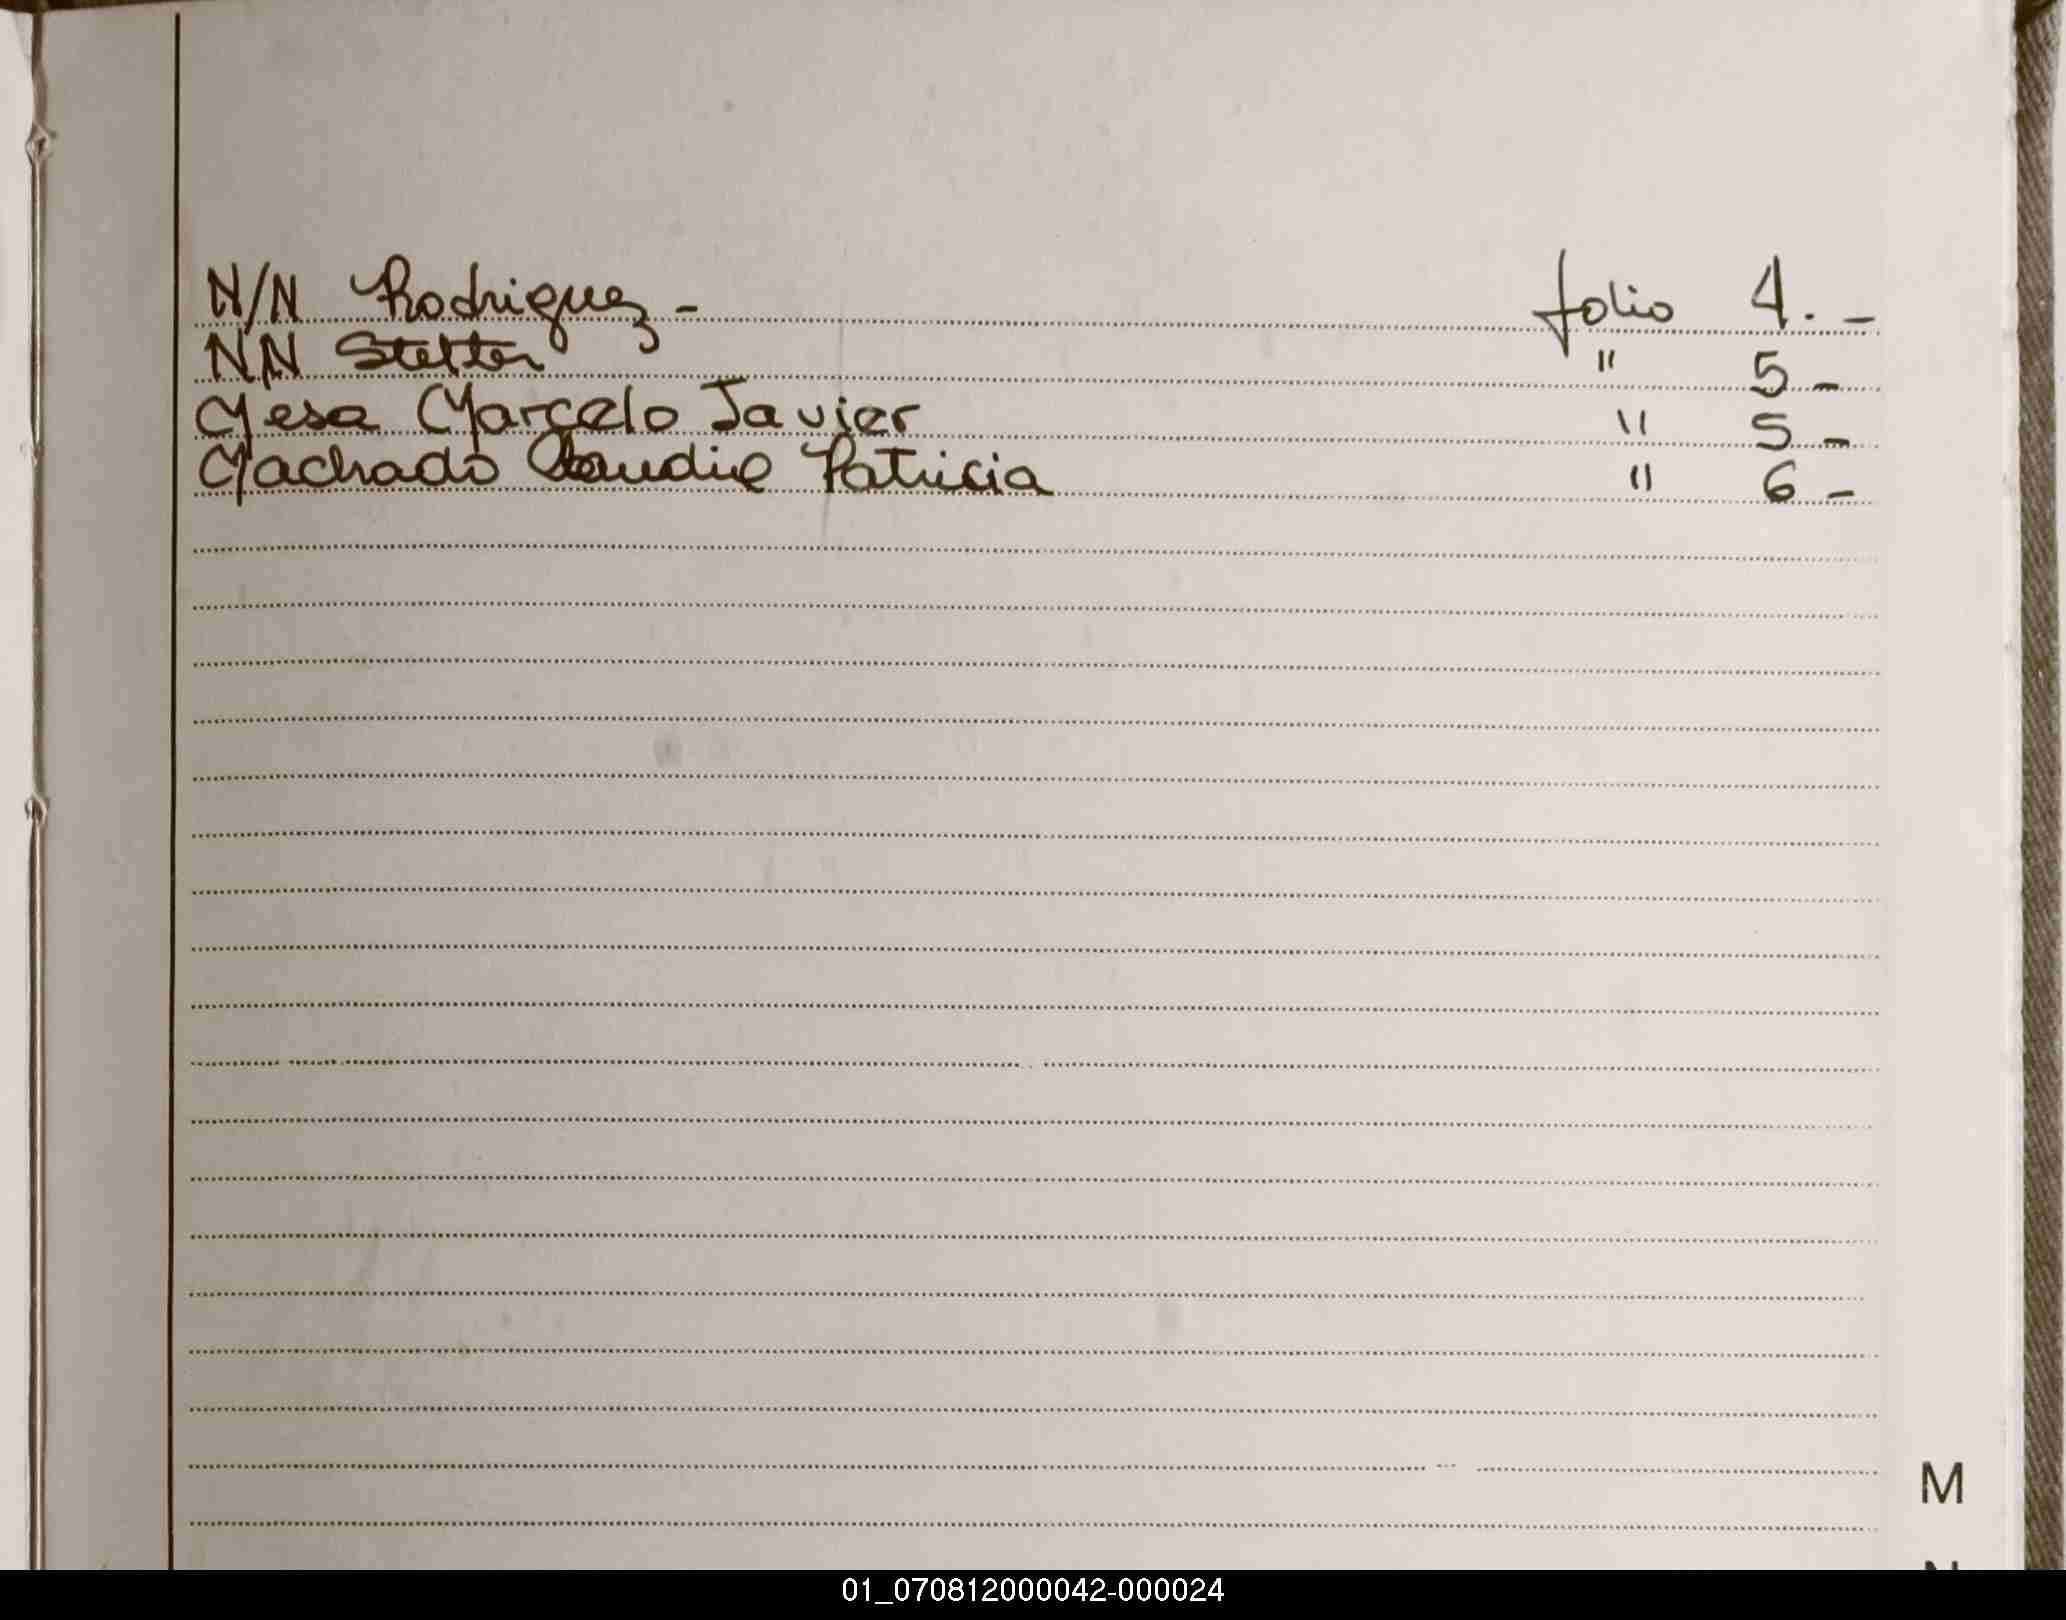 N/N Rodriguez - folio 4. -
N/N Stetter " 5 -
Mesa Marcelo Javier " 5 -
Machado Claudia Patricia " 6 -
M
01_070812000042-000024